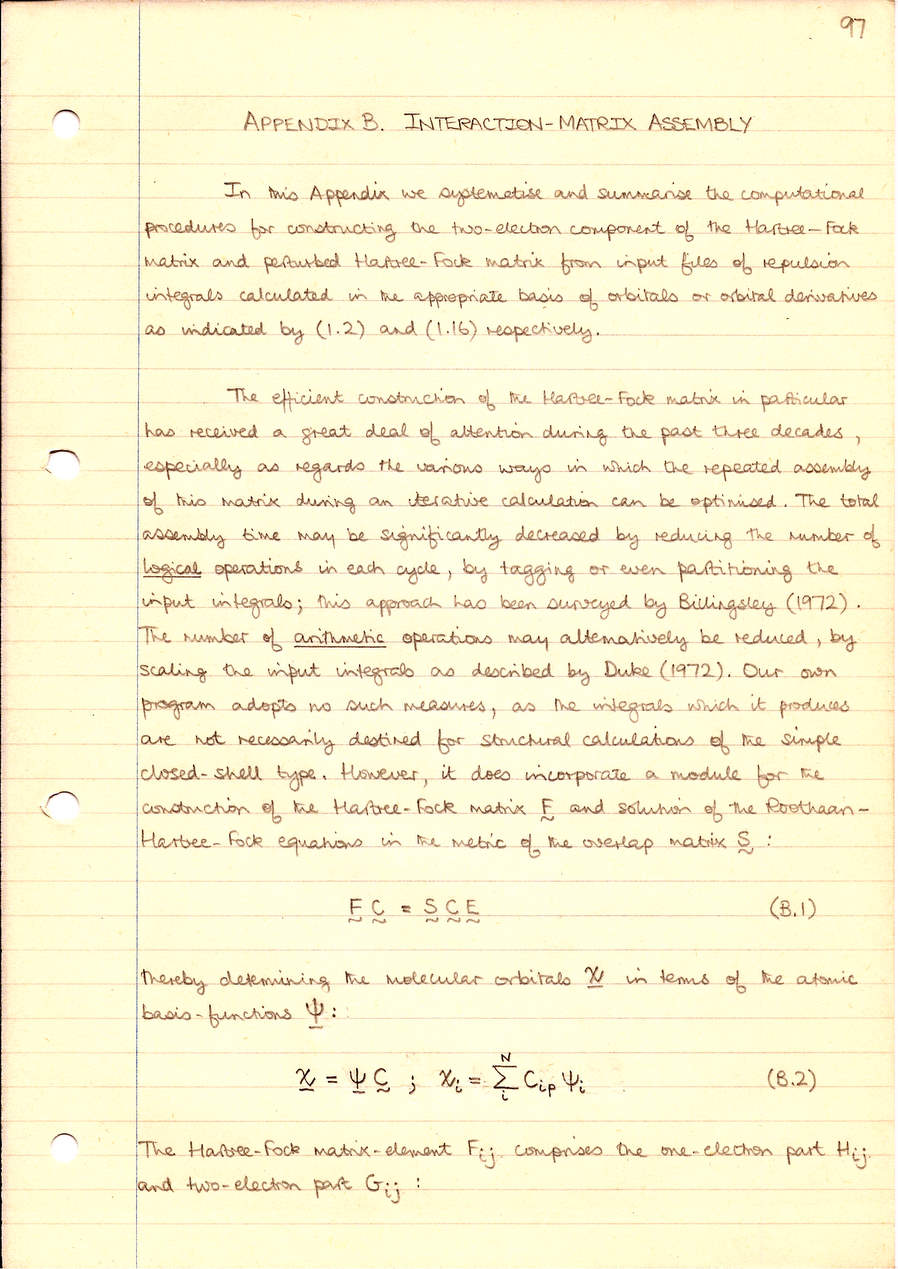 97
APPENDIX B. INTERACTION-MATRIX ASSEMBLY
In this Appendix we systematise and summarise the computational
procedures for constructing the two-electron component of the Hartree-Fock
matrix and perturbed Hartree-Fock matrix from input files of repulsion
integrals calculated in the appropriate basis of orbitals or orbital derivatives
as indicated by (1.2) and (1.16) respectively.
The efficient construction of the Hartree-Fock matrix in particular
has received a great deal of attention during the past three decades,
especially as regards the various ways in which the repeated assembly
of this matrix during an iterative calculation can be optimised. The total
assembly time may be significantly decreased by reducing the number of
logical operations in each cycle, by tagging or even partitioning the
input integrals; this approach has been surveyed by Billingsley (1972).
The number of arithmetic operations may alternatively be reduced, by
scaling the input integrals as described by Duke (1972). Our own
program adopts no such measures, as the integrals which it produces
are not necessarily destined for structural calculations of the simple
closed-shell type. However, it does incorporate a module for the
construction of the Hartree-Fock matrix F and solution of the Roothaan-
Hartree-Fock equations in the metric of the overlap matrix S :
F C = S C E (B.1)
thereby determining the molecular orbitals χ in terms of the atomic
basis-functions ψ :
χ = ψ C ; χi = N Σ i Cip ψi (B.2)
The Hartree-Fock matrix-element Fij comprises the one-electron part Hij
and two-electron part Gij :